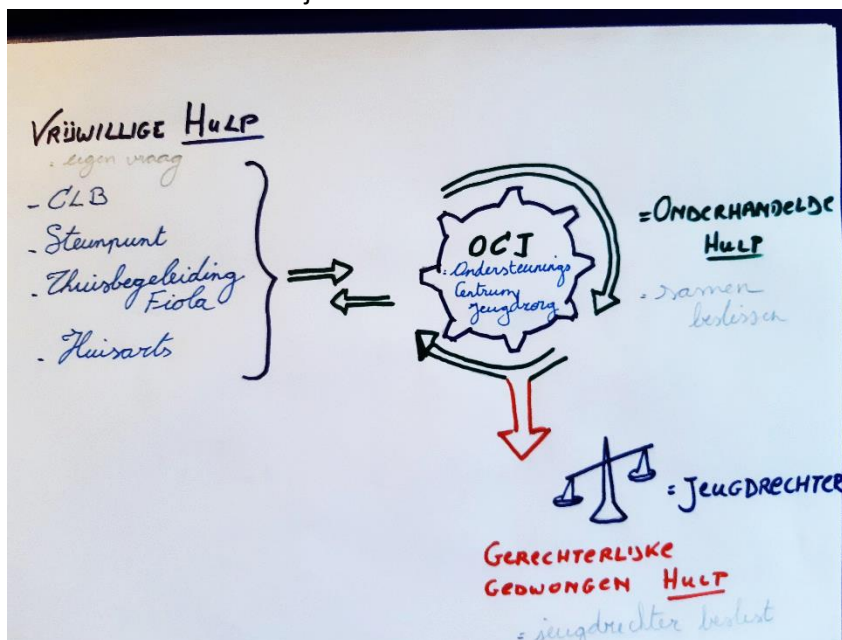 VRIJWILLIGE HULP
. eigen vraag
- CLB
- Steunpunt
. Thuisbegeleiding
Fiola
. Huisarts
OCJ
= Ondersteunings
Centrum
Jeugdzorg
= ONDERHANDELDE
HULP
. samen
beslissen
= JEUGDRECHTER
GERECHTERLIJKE
GEDWONGEN HULP
= jeugdrechter beslist